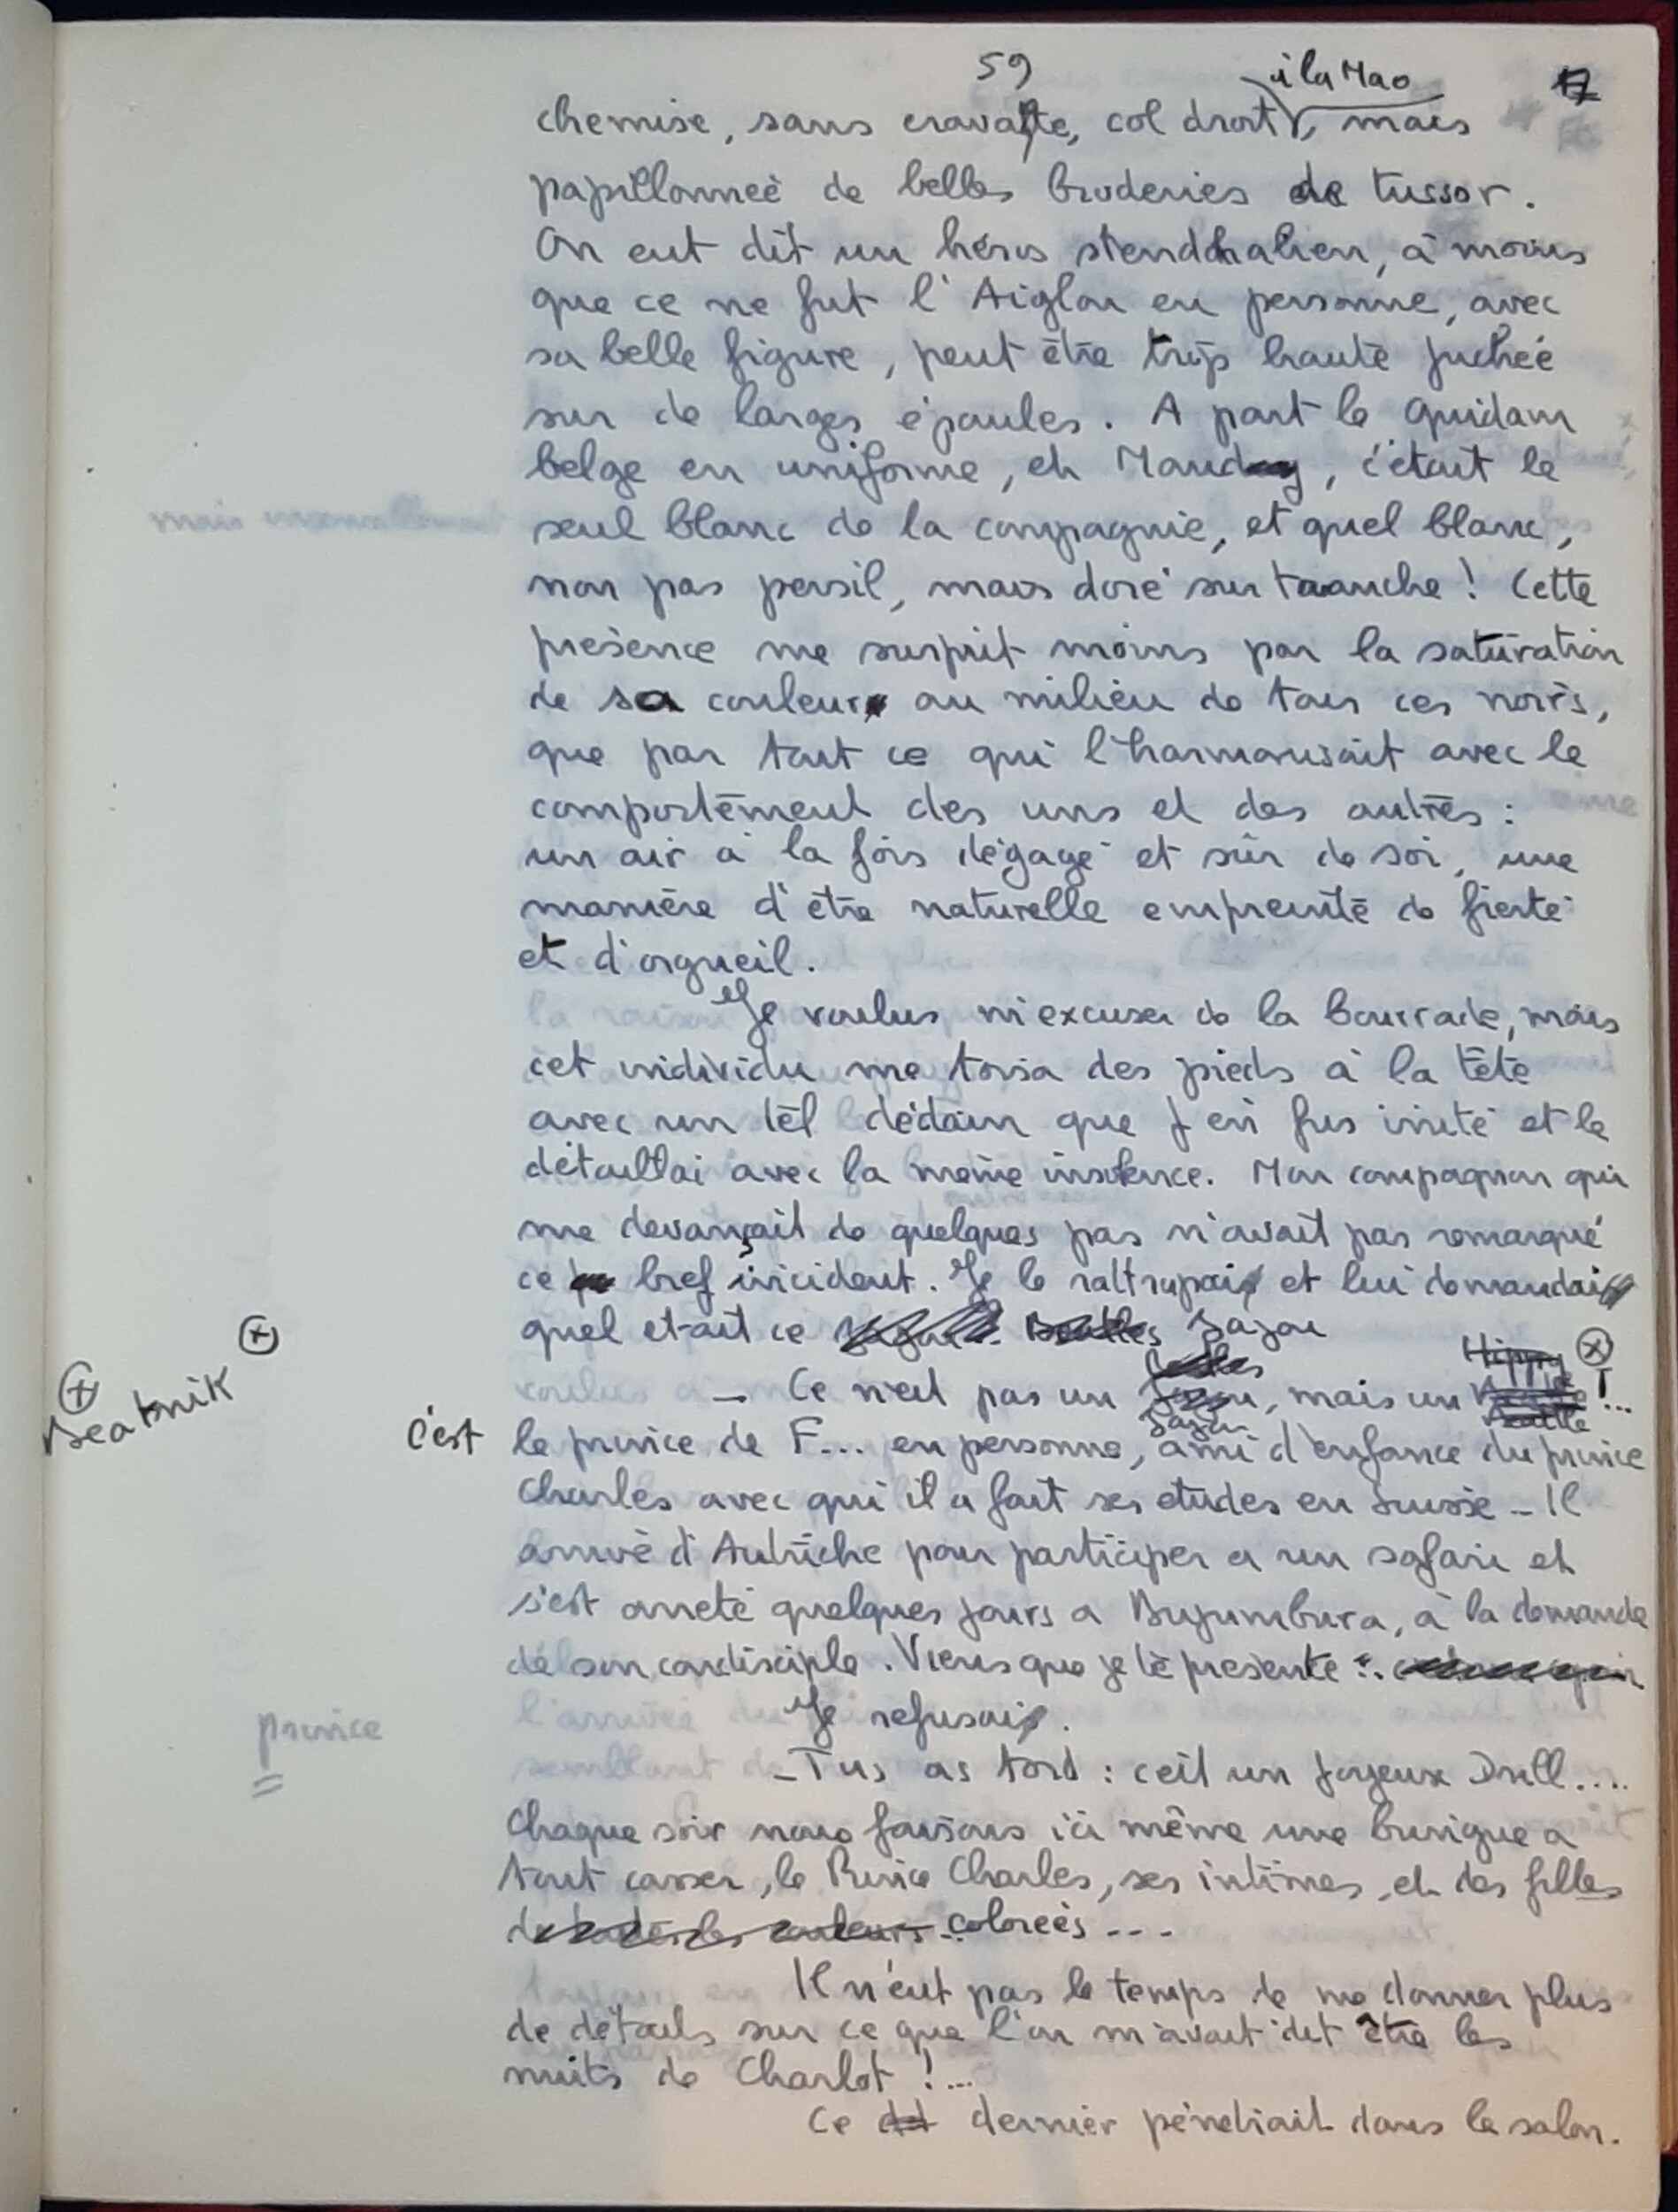 59
à la Mao
17
chemise, sans cravate, col droit, mais
papillonneé de belles broderies de tussor.
On eut dit un héros stendhalien, à moins
que ce ne fut l'Aiglon en personne, avec
sa belle figure, peut être trop haute juchée
sur de larges épaules. A part le Quidam
belge en uniforme, et Maudy, c'était le
seul blanc de la compagnie, et quel blanc,
non pas persil, mais doré sur tranche! Cette
présence me surprit moins par la saturation
de sa couleur au milieu de tous ces noirs,
que par tout ce qui l'harmonisait avec le
comportement des uns et des autres:
un air à la fois dégagé et sûr de soi, une
manière d'être naturelle empreinte de fierté
et d'orgueil.
Je voulus m'excuser de la bourrade, mais
cet individu me toisa des pieds à la tête
avec un tel dédain que j'en fus irrité et le
détaillai avec la même insolence. Mon compagnon qui
me devançait de quelques pas n'avait pas remarqué
ce bref incident. Je le rattrapai et lui demandai
quel etait ce Zazou
- Ce n'est pas un Zazou, mais un !...
Hippy
Beatle
Beatnik
c'est le prince de F... en personne, ami d'enfance du prince
Charles avec qui il a fait ses etudes en Suisse - Il
arrive d'Autriche pour participer a un safari et
s'est arreté quelques jours a Bujumbura, à la demande
de son condisciple. Viens que je te presente...
Je refusai.
prince
- Tus as tord: c'est un joyeux Drill....
Chaque soir nous faisons ici même une bringue a
tout casser, le Prince Charles, ses intimes, et des filles
colorées...
Il n'eut pas le temps de me donner plus
de détails sur ce que l'on m'avait dit être les
nuits de Charlot!...
Ce dernier pénétrait dans le salon.